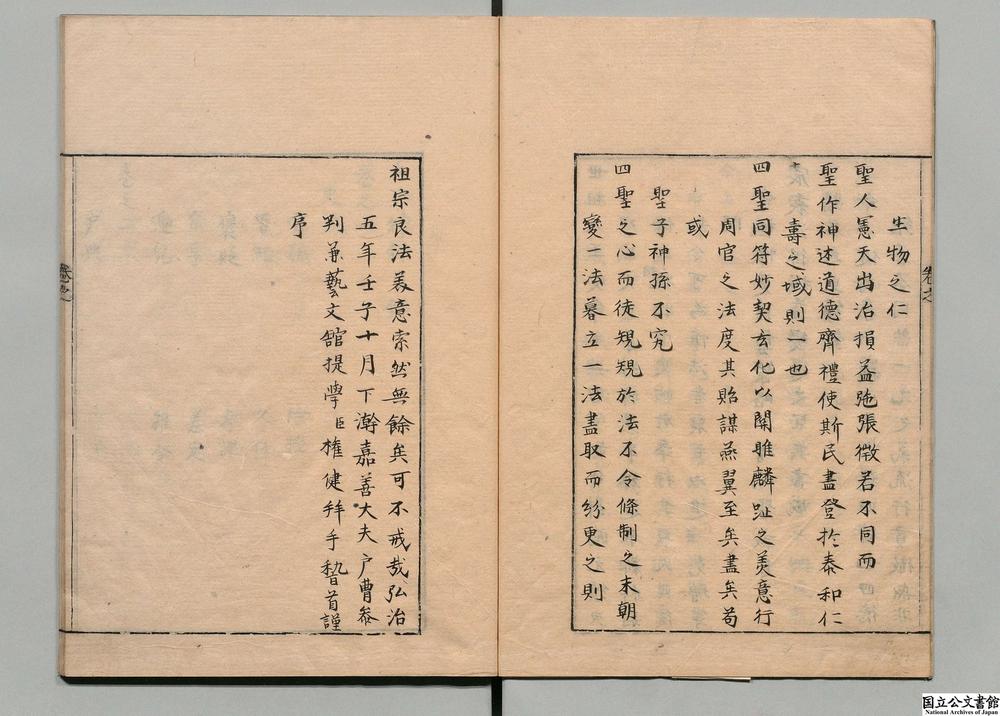 生物之仁
聖人憲天出治損益弛張微若不同而
聖作神述道德齊禮使斯民盡登於泰和仁
壽之域則一也
四聖同符妙契玄化以關雎麟趾之美意行
周官之法度其貽謀燕翼至矣盡矣苟
或
聖子神孫不究
四聖之心而徒規規於法不令條制之末朝
變一法暮立一法盡取而紛更之則
祖宗良法美意索然無餘矣可不戒哉弘治
五年壬子十月下澣嘉善大夫戶曹叅
判兼藝文館提學臣權健拜手稽首謹
序
国立公文書館
National Archives of Japan